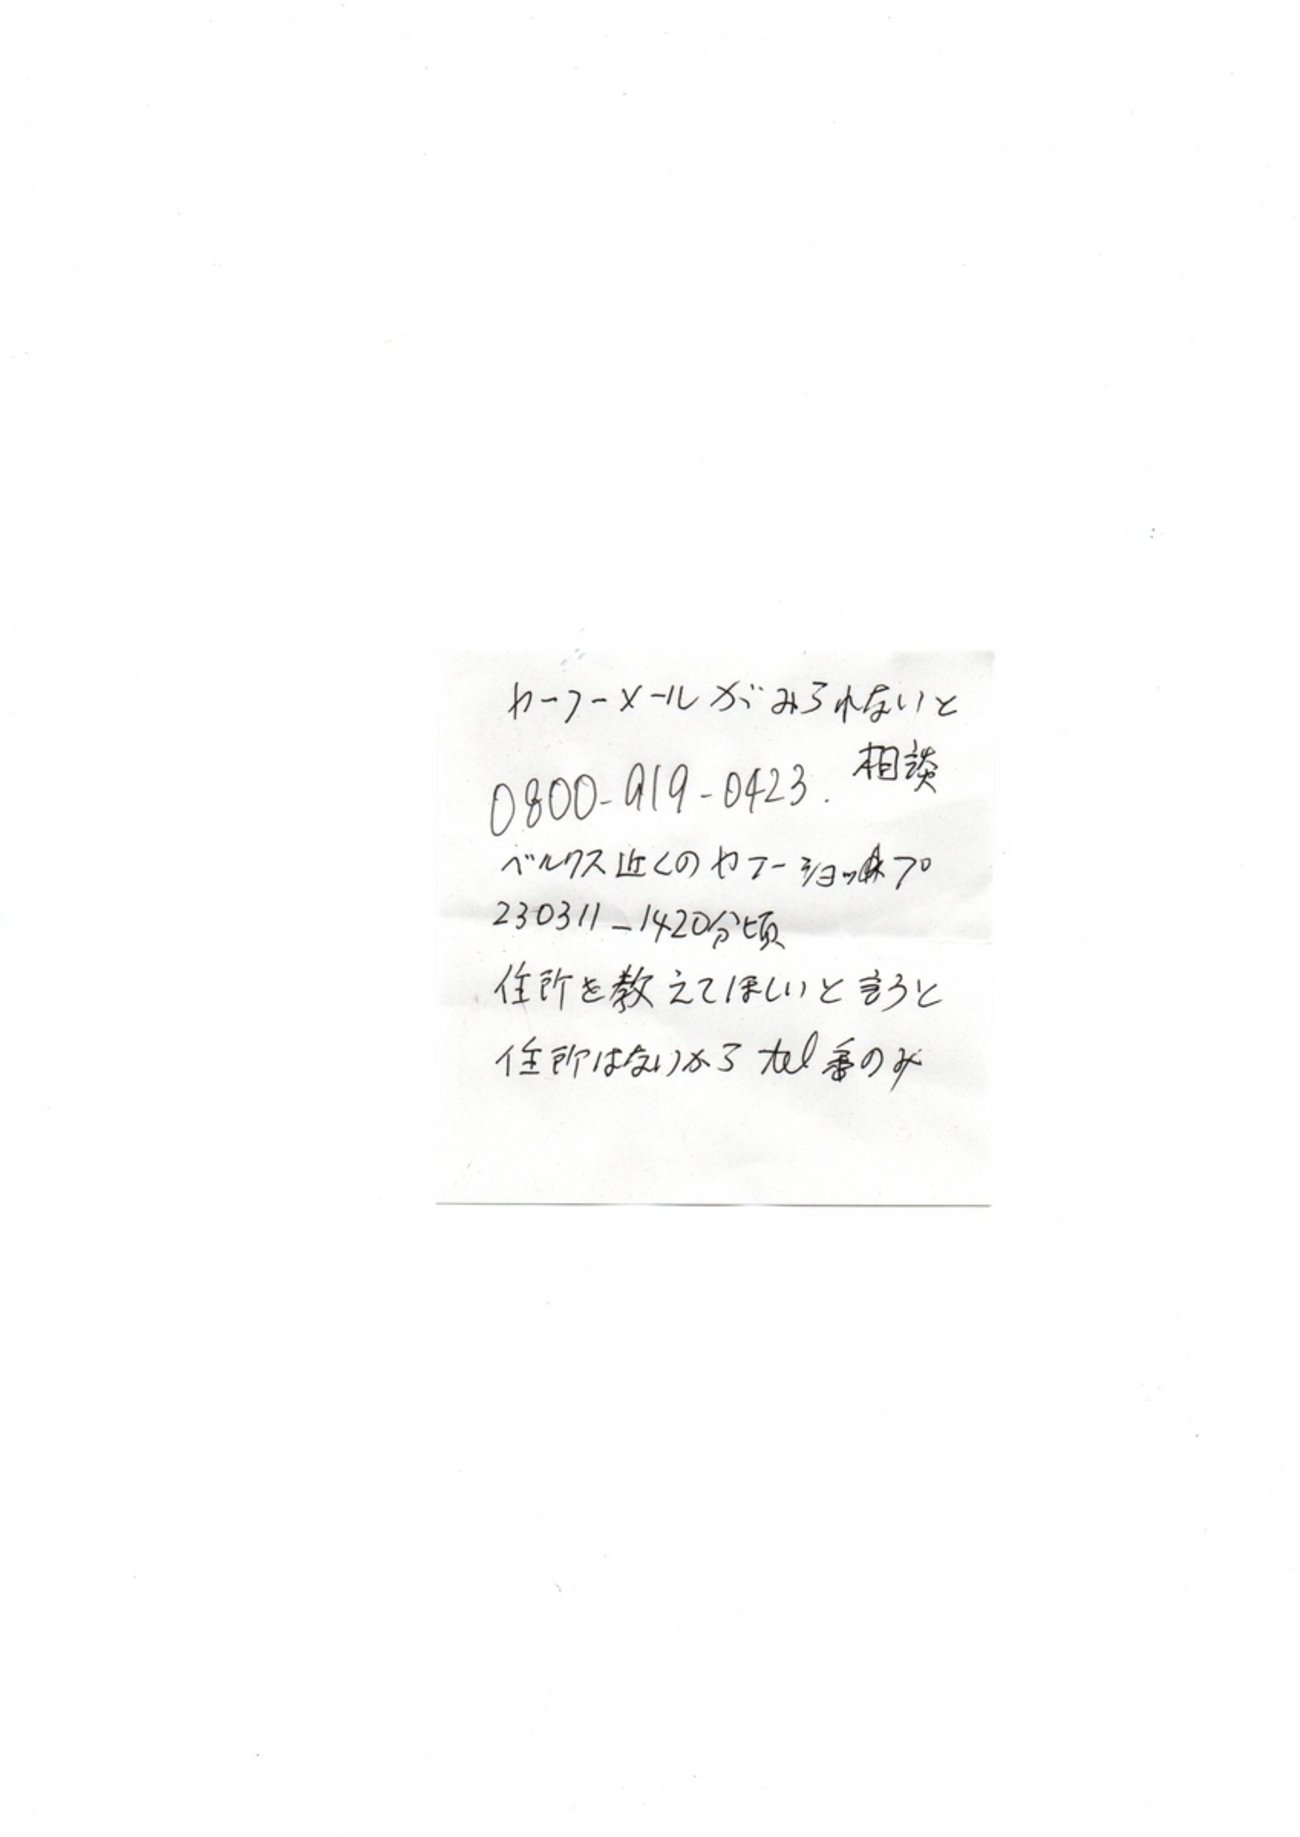 ヤーフーメールがみられないと
相談
0800-919-0423.
ベルクス近くのヤフーショップ
230311_1420分頃
住所を教えてほしいと言うと
住所はないから tel番のみ